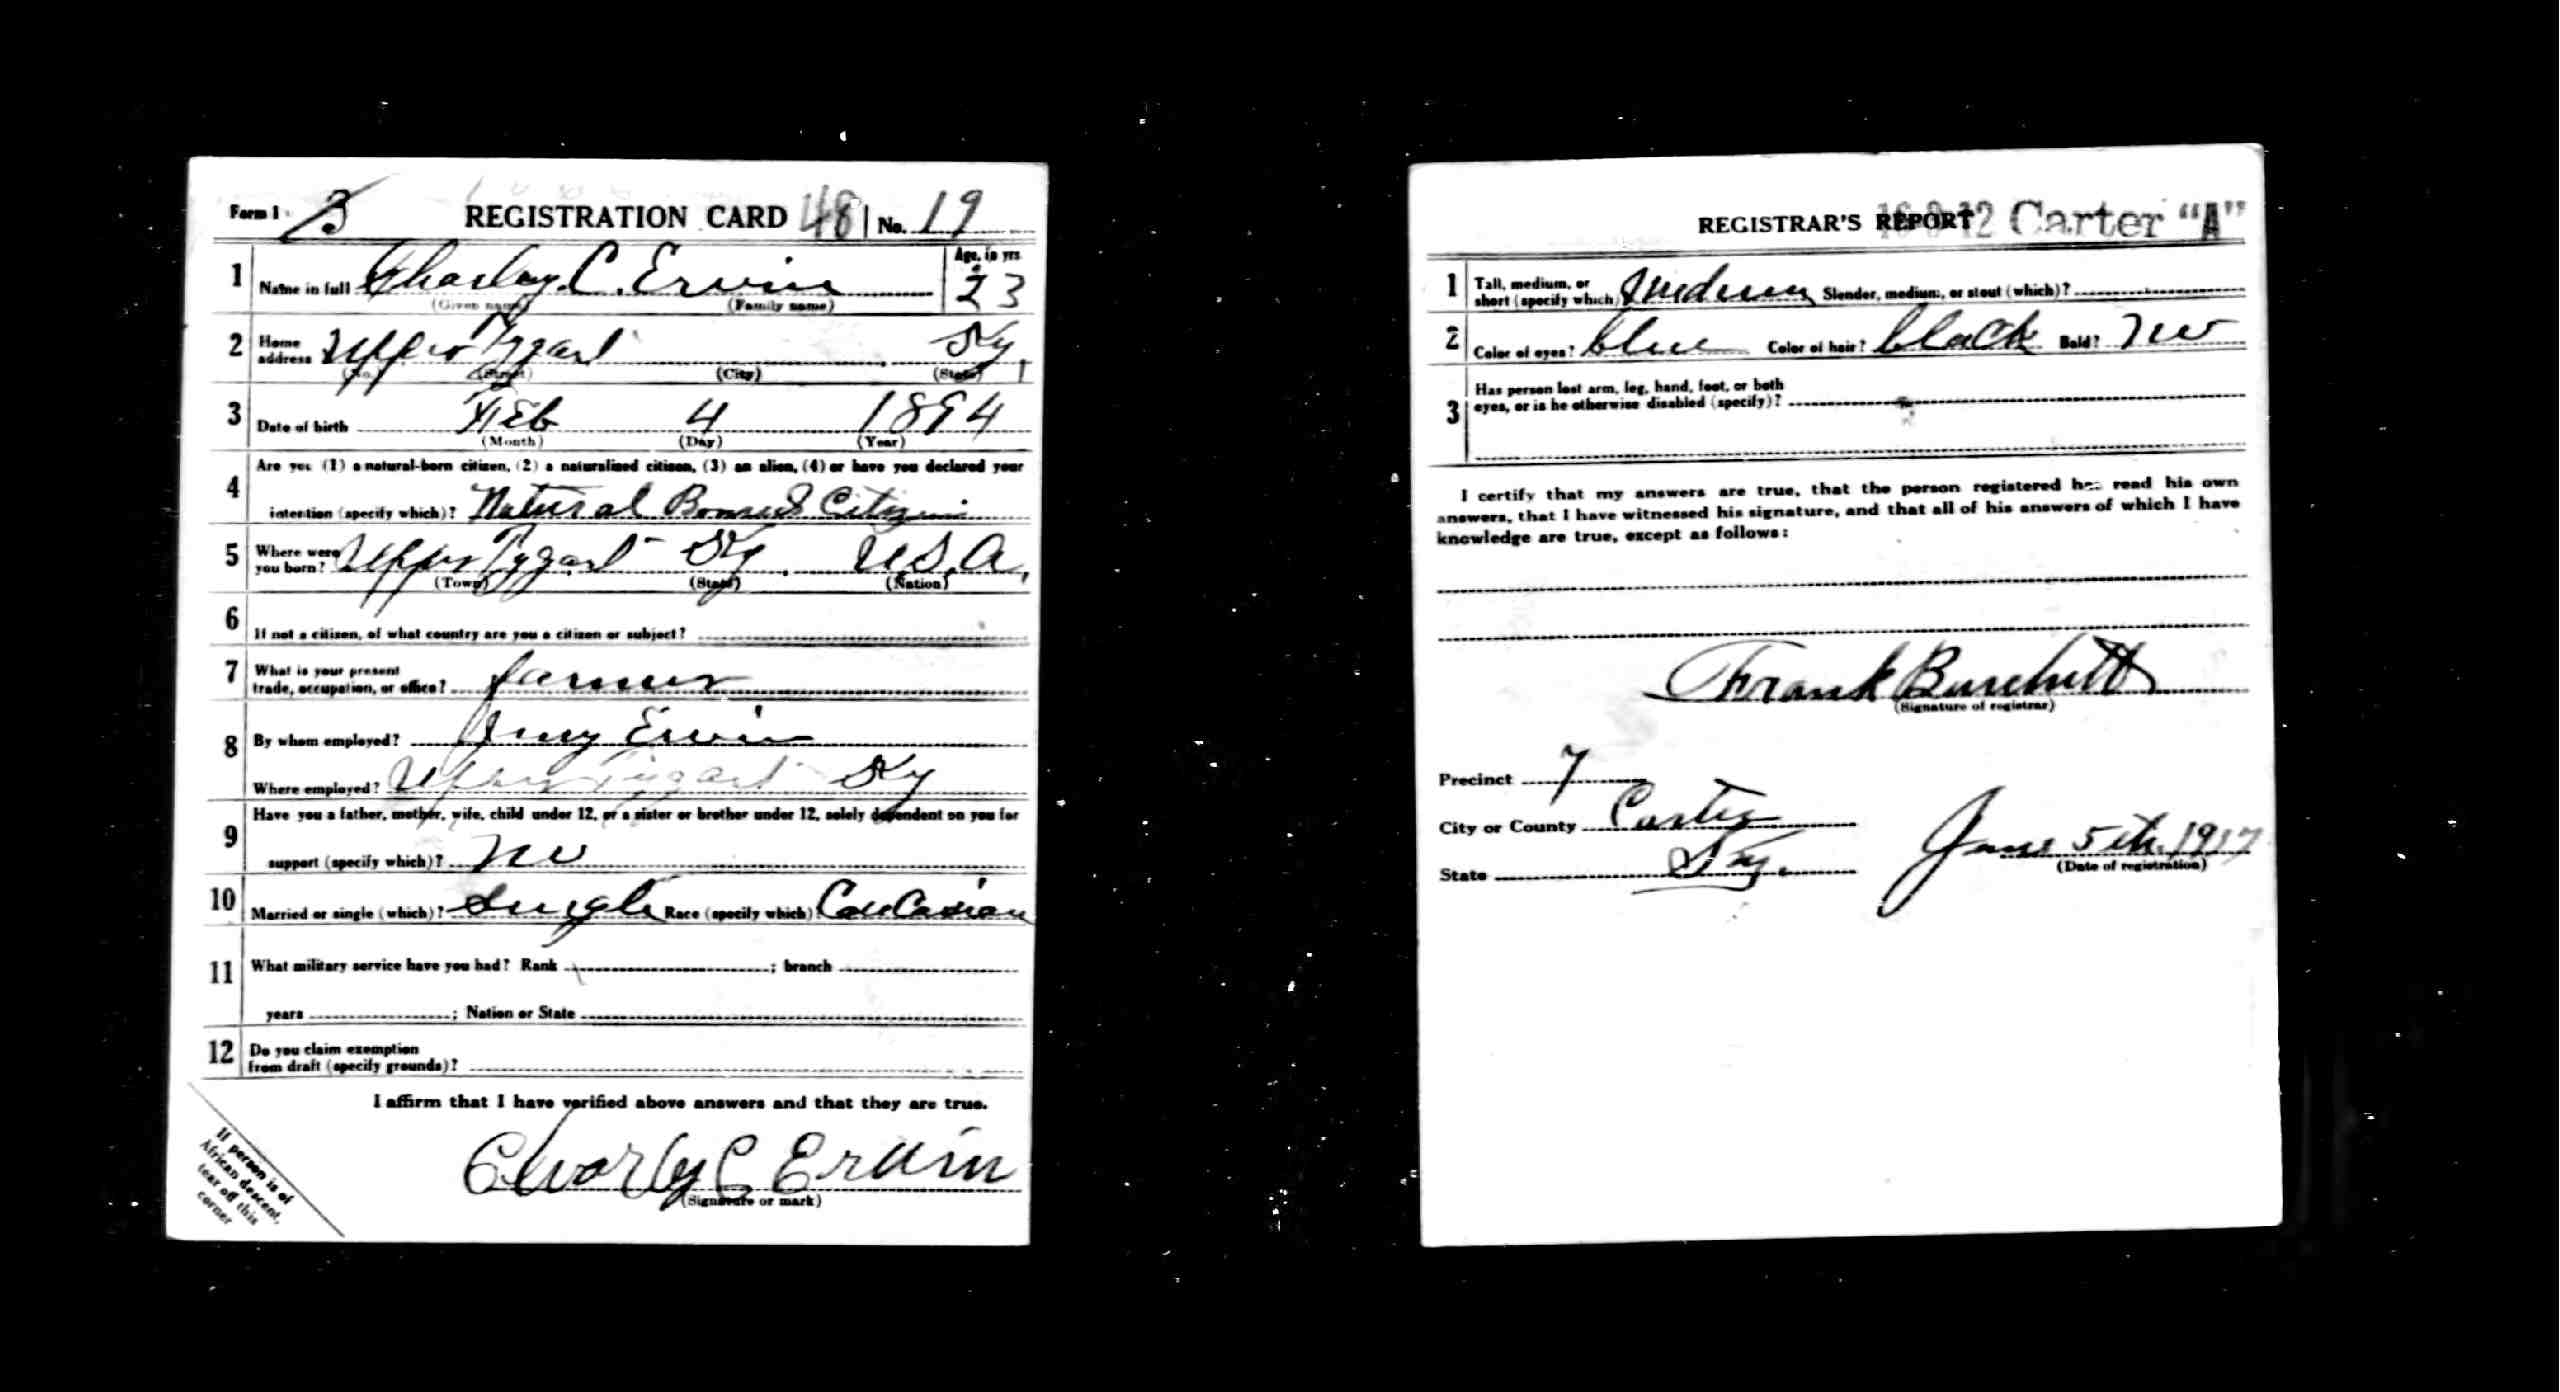 Form 1 3 REGISTRATION CARD 48 No. 19
1 Name in full Charley. C. Ervin Age, in yrs. 23
(Given name) (Family name)
2 Home address Upper Tygart Ky.
(No.) (Street) (City) (State)
3 Date of birth Feb 4 1894
(Month) (Day) (Year)
4 Are you (1) a natural-born citizen, (2) a naturalized citizen, (3) an alien, (4) or have you declared your
intention (specify which)? Natural Citizen
5 Where were you born? Upper Tygart Ky. U.S.A.
(Town) (State) (Nation)
6 If not a citizen, of what country are you a citizen or subject?
7 What is your present
trade, occupation, or office? farmer
8 By whom employed? Ervin
Where employed? Upper Tygart Ky
9 Have you a father, mother, wife, child under 12, or a sister or brother under 12, solely dependent on you for
support (specify which)? no
10 Married or single (which)? Single Race (specify which) Caucasian
11 What military service have you had? Rank ; branch
years ; Nation or State
12 Do you claim exemption
from draft (specify grounds)?
I affirm that I have verified above answers and that they are true.
Charley C Ervin
(Signature or mark)
If person is of
African descent,
tear off this
corner
REGISTRAR'S REPORT Carter "A"
1 Tall, medium, or
short (specify which) Medium Slender, medium, or stout (which)?
2 Color of eyes? blue Color of hair? black Bald? no
3 Has person lost arm, leg, hand, foot, or both
eyes, or is he otherwise disabled (specify)?
I certify that my answers are true, that the person registered has read his own
answers, that I have witnessed his signature, and that all of his answers of which I have
knowledge are true, except as follows:
Frank Burchett
(Signature of registrar)
Precinct 7
City or County Carter
State Ky. June 5th. 1917
(Date of registration)